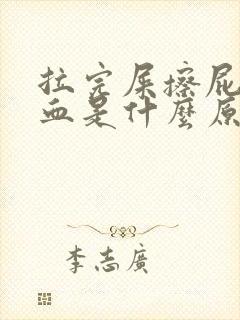 拉完屎擦屁
血是什麼原
李志廣